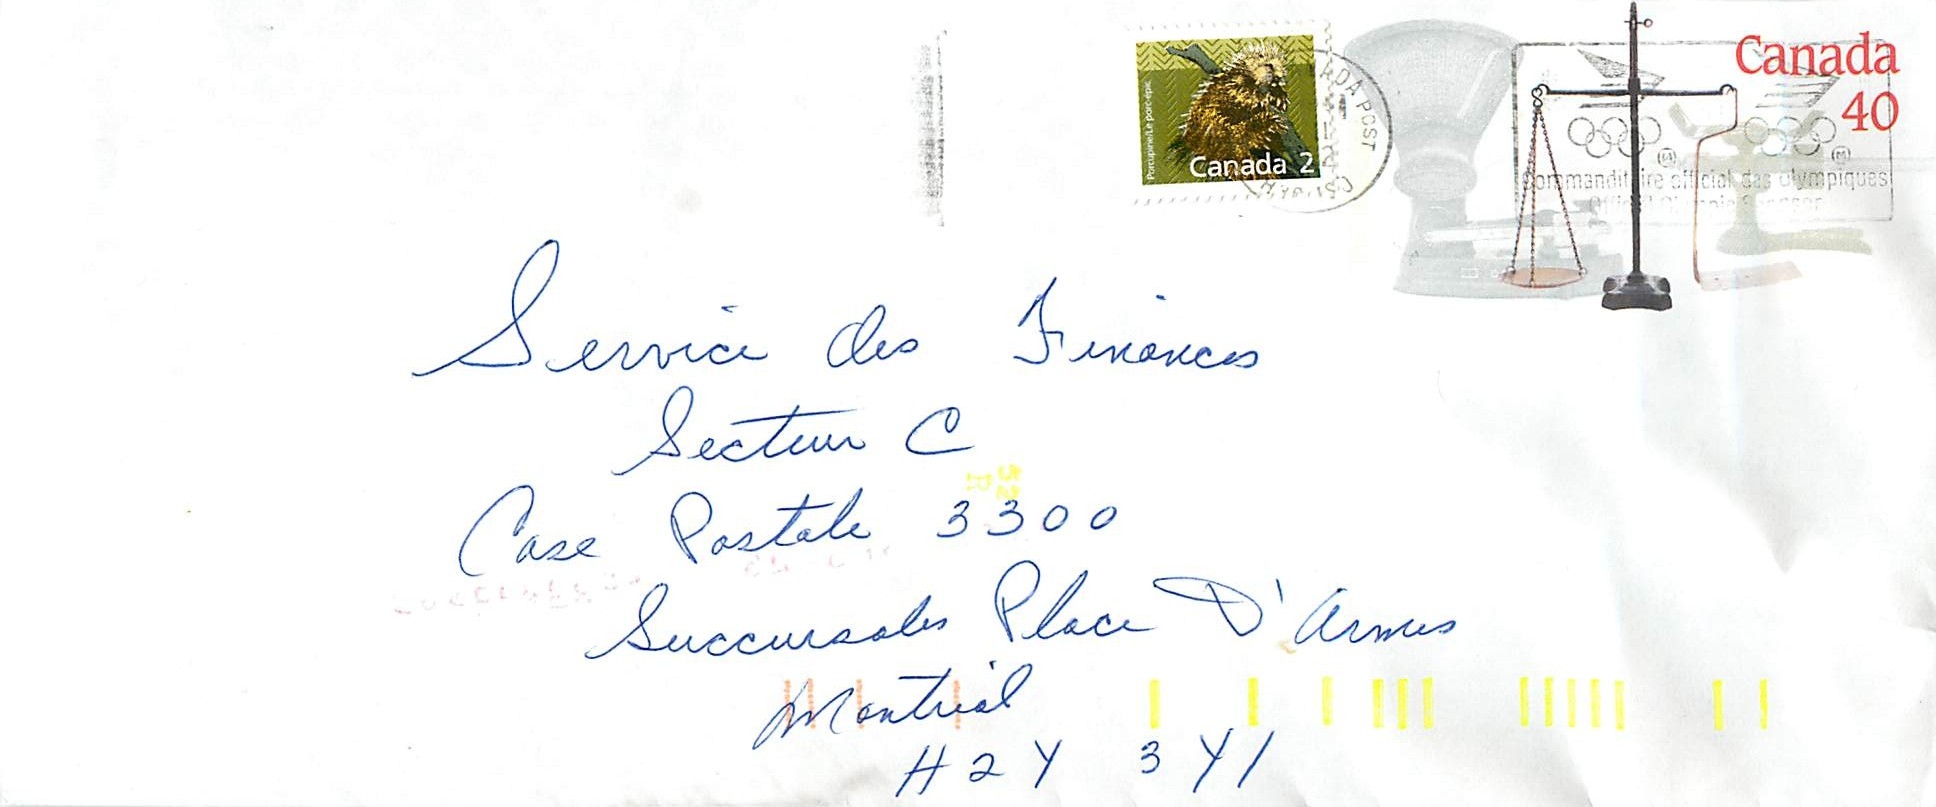 Canada
40
Porcupine/Le porc-épic
Canada 2
ADA POST
Commanditaire officiel des Olympiques
Official Olympic Sponsor
Service des Finances
Secteur C
52
R
Case Postale 3300
Succursales Place D'Armes
Montréal
H2Y 3Y1